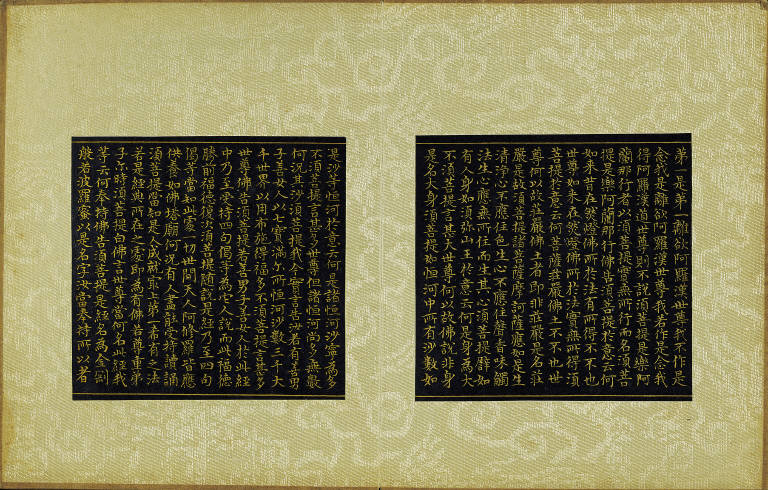 第一是第一離欲阿羅漢世尊我不作是
念我是離欲阿羅漢世尊我若作是念我
得阿羅漢道世尊則不說須菩提是樂阿
蘭那行者以須菩提實無所行而名須菩
提是樂阿蘭那行佛告須菩提於意云何
如來昔在然燈佛所於法有所得不不也
世尊如來在然燈佛所於法實無所得須
菩提於意云何菩薩莊嚴佛土不不也世
尊何以故莊嚴佛土者即非莊嚴是名莊
嚴是故須菩提諸菩薩摩訶薩應如是生
清淨心不應住色生心不應住聲香味觸
法生心應無所住而生其心須菩提譬如
有人身如須弥山王於意云何是身為大
不須菩提言甚大世尊何以故佛說非身
是名大身須菩提如恒河中所有沙數如
是沙等恒河於意云何是諸恒河沙寧為多
不須菩提言甚多世尊但諸恒河尚多無數
何況其沙須菩提我今實言告汝若有善男
子善女人以七寶滿尒所恒河沙數三千大
千世界以用布施得福多不須菩提言甚多
世尊佛告須菩提若善男子善女人於此經
中乃至受持四句偈等為他人說而此福德
勝前福德復次須菩提隨說是經乃至四句
偈等當知此處一切世間天人阿修羅皆應
供養如佛塔廟何況有人盡能受持讀誦
須菩提當知是人成就最上第一希有之法
若是經典所在之處即為有佛若尊重弟
子尒時須菩提白佛言世尊當何名此經我
等云何奉持佛告須菩提是經名為金剛
般若波羅蜜以是名字汝當奉持所以者